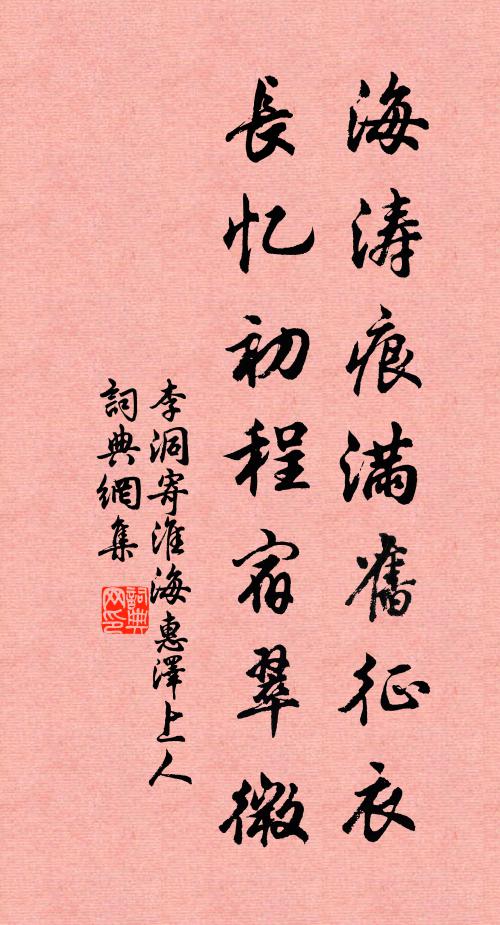 海涛痕满舊征衣
長忆初程宿翠微
李洞寄淮海惠澤上人
詞典網集
詞典网印